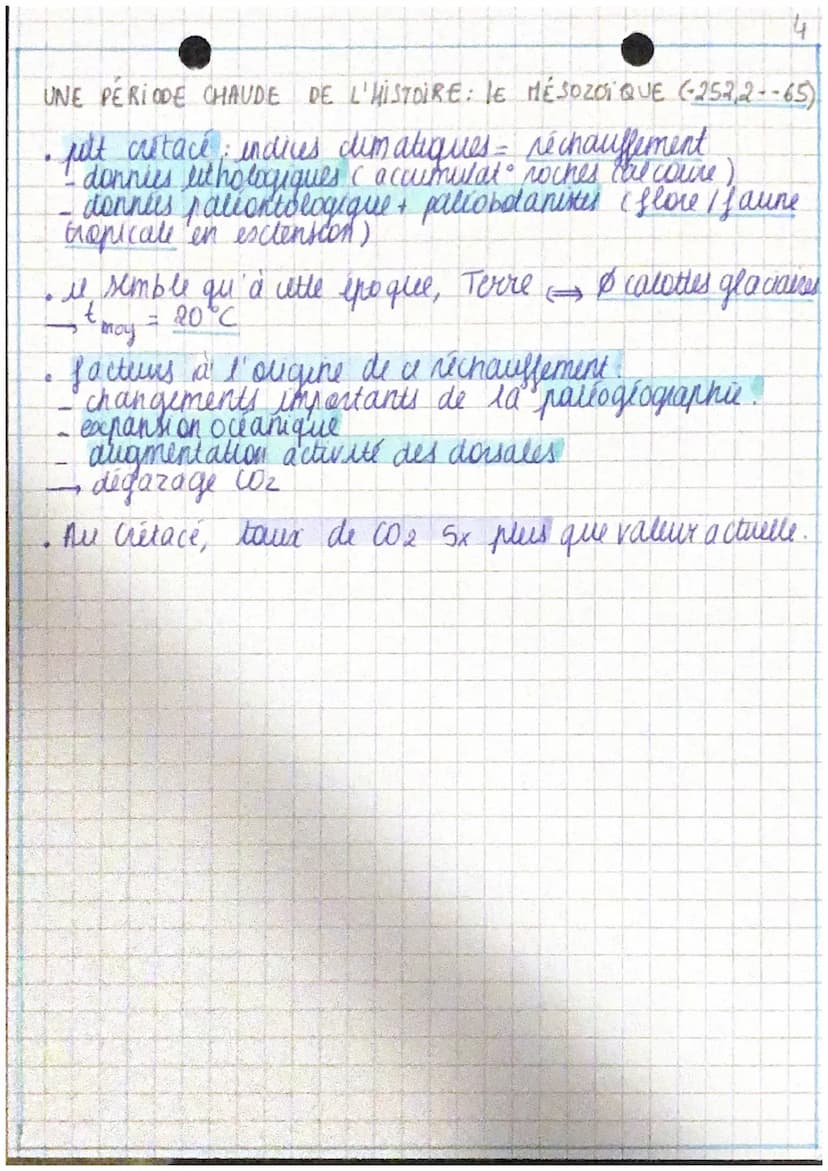 4
UNE PÉRIODE CHAUDE DE L'HISTOIRE: lE MÉSOZOÏQUE (-252,2--65)
• pdt crétacé : indices climatiques = réchauffement
- données lithologiques (accumulat° roches calcaire)
- données paléontologique + paléobotanistes (flore / faune
tropicale en esctension)
• il semble qu'à cette époque, Terre ⟺ Ø calottes glaciaires
→ t moy = 20°C
• facteurs à l'origine de ce réchauffement:
- changements importants de la paléogéographie:
- expansion océanique
- augmentation activité des dorsales
→ dégazage CO2
• Au Crétacé, taux de CO2 5x plus que valeur actuelle.